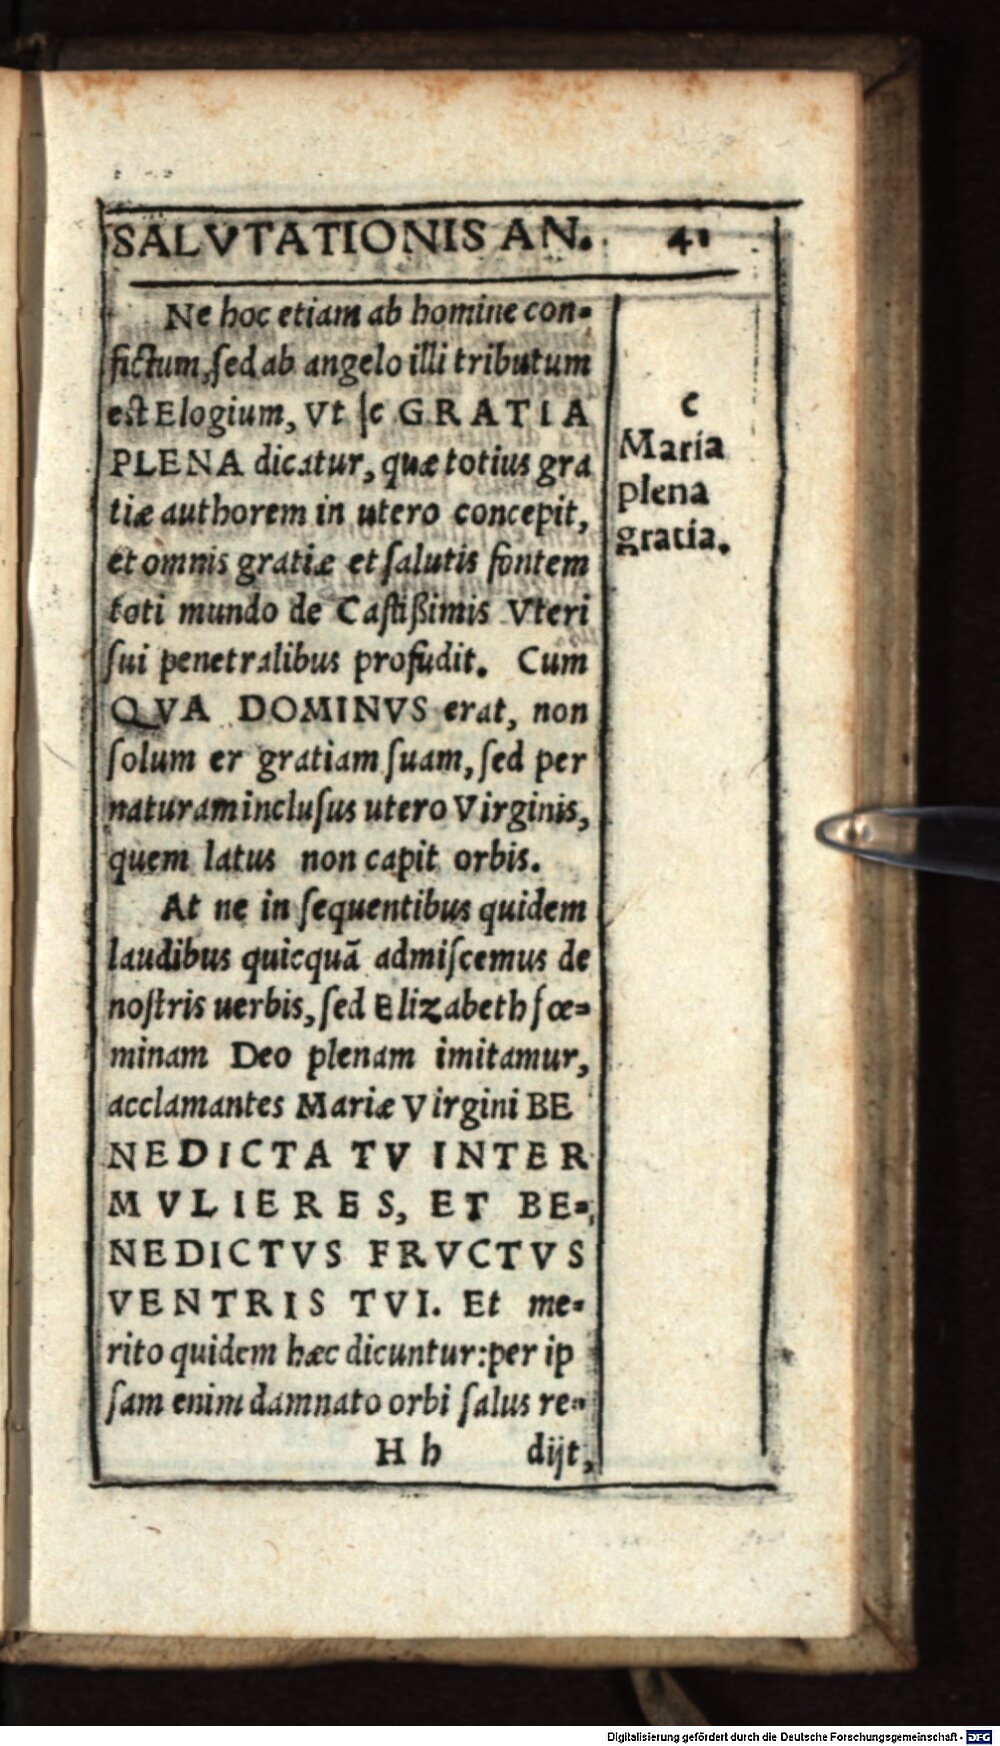 SALVTATIONIS AN. 41
Ne hoc etiam ab homine con-
fictum, sed ab angelo illi tributum
est Elogium, Vt |c GRATIA
PLENA dicatur, quæ totius gra
tiæ authorem in utero concepit,
et omnis gratiæ et salutis fontem
toti mundo de Castißimis Vteri
sui penetralibus profudit. Cum
QVA DOMINVS erat, non
solum er gratiam suam, sed per
naturam inclusus utero Virginis,
quem latus non capit orbis.
At ne in sequentibus quidem
laudibus quicquā admiscemus de
nostris uerbis, sed Elizabeth fœ-
minam Deo plenam imitamur,
acclamantes Mariæ Virgini BE
NEDICTA TV INTER
MVLIERES, ET BE-
NEDICTVS FRVCTVS
VENTRIS TVI. Et me-
rito quidem hæc dicuntur: per ip
sam enim damnato orbi salus re-
H h dijt,
c
Maria
plena
gratia.
Digitalisierung gefördert durch die Deutsche Forschungsgemeinschaft - DFG